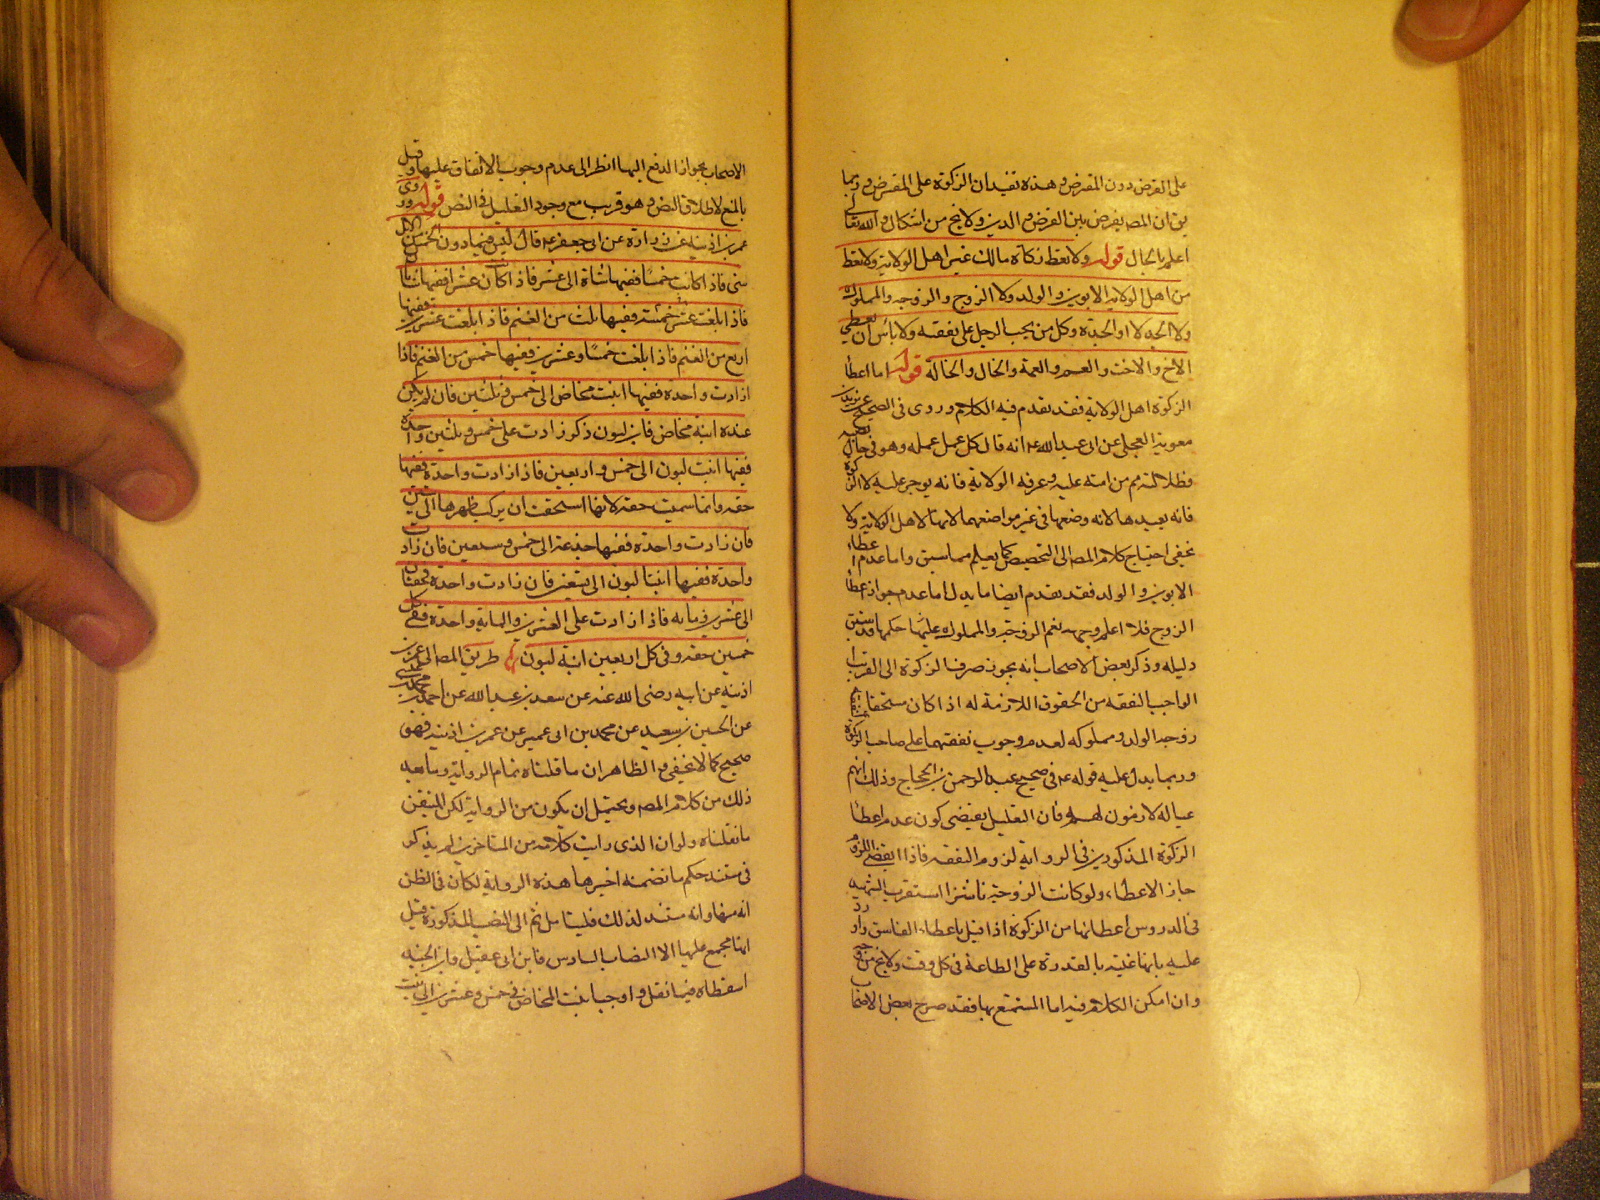 على القرض دون المقرض و هذه تفيد ان الزكوة على المقرض و ربما
ان المصه يفرض بين القرض و الدين و لا يخ من اشكال و الله تعالى
اعلم بالحال قوله ولا تعط زكاة مالك غير اهل الولاية ولا تعط
من اهل الولاية الابوين و الولد ولا الزوج و الزوجه والمملوك
ولا الجد ولا الجدة وكل من يجب الرجل على نفقته ولا باس ان تعطي
الاخ والاخت والعم والعمة والخال والخالة قوله اما اعطا
الزكوة اهل الولاية فقد تقدم فيه الكلام و روى فى الصحيح عن بريد بن
معوية العجلى عن ابى عبد الله ع انه قال كل عمل عمله وهو فى حال نصبه
و ضلالته ثم من الله عليه و عرفه الولاية فانه يوجر عليه الا الزكوة
فانه يعيدها لانه وضعها فى غير مواضعها لانها لاهل الولاية ولا
يخفى احتياج كلام المصه الى التخصيص كما يعلم مما سبق واما عدم اعطاء
الابوين و الولد فقد تقدم ايضا ما يدل اما عدم جواز اعطا
الزوج فلا اعلم وجهه نعم الزوجة والمملوك عليهما حكمها قد سبق
دليله و ذكر بعض الاصحاب انه يجوز صرف الزكوة الى القريب
الواجب النفقه من الحقوق اللازمة له اذا كان مستحقا
زوجه الولد و مملوكه لعدم وجوب نفقتهما على صاحب الزكوة
و ربما يدل عليه قوله ع فى صحيح عبد الرحمن بن الحجاج و ذلك انهم
عياله لازمون له فان التعليل يقتضى كون عدم اعطا
الزكوة المذكورين فى الرواية لزوم النفقه فاذا انقضى اللزوم
جاز الاعطاء ولو كانت الزوجة ناشزا استقرب الشهيد
فى الدروس اعطائها من الزكوة اذا قيل باعطاء الفاسق و اورد
عليه بانها غنية بالقدرة على الطاعة فى كل وقت ولا يخ من وجه
وان امكن الكلام فيه اما المستمتع بها فقد صرح بعض الاصحاب
الاصحاب بجواز الدفع اليها انظر الى عدم وجوب الانفاق عليها و قيل
بالمنع لاطلاق النص و هو قريب مع وجود التعليل فى النص قوله و روى
عمر بن اذينه عن زرارة عن ابى جعفر ع قال ليس فيما دون الخمس من الابل
شى فاذا كانت خمسا ففيها شاة الى عشر فاذا كانت عشرا ففيها شاتان
فاذا بلغت خمسة عشر ففيها ثلث من الغنم فاذا بلغت عشرين ففيها
اربع من الغنم فاذا بلغت خمسا و عشرين ففيها خمس من الغنم فاذا
زادت واحدة ففيها ابنت مخاض الى خمس و ثلثين فان لم يكن
عنده ابنة مخاض فابن لبون ذكر زادت على خمس و ثلثين واحدة
ففيها ابنت لبون الى خمس و اربعين فاذا زادت واحدة ففيها
حقه وانما سميت حقه لانها استحقت ان يركب ظهرها الى ستين
فان زادت واحدة ففيها جذعة الى خمس و سبعين فان زادت
واحدة ففيها ابنتا لبون الى تسعين فان زادت واحدة فحقتان
الى عشرين و مايه فاذا زادت على العشرين والمايه واحدة ففى كل
خمسين حقه و فى كل اربعين ابنة لبون طريق المصه الى عمر بن
اذينه عن ابيه رضى الله عنه عن سعد بن عبد الله عن احمد بن محمد بن عيسى
عن الحسين بن سعيد عن محمد بن ابى عمير عن عمر بن اذينه فهو
صحيح كما لا يخفى و الظاهر ان ما قلناه تمام الرواية و ما بعد
ذلك من كلام المصه و يحتمل ان يكون من الرواية لكن المتيقن
ما نقلناه ولو ان الذى رايت كلامه من المتاخرين لم يذكر
فى مستند حكم ما تضمنه اخيرها هذه الرواية لكان فى الظن
انه منها وانه مستند لذلك فليتامل ثم الى النصب المذكورة قيل
انها مجمع عليها الا النصاب السادس فابن ابى عقيل و ابن الجنيد
اسقطاه فيما نقل و اوجبا بنت المخاض فى خمس و عشرين الى ست